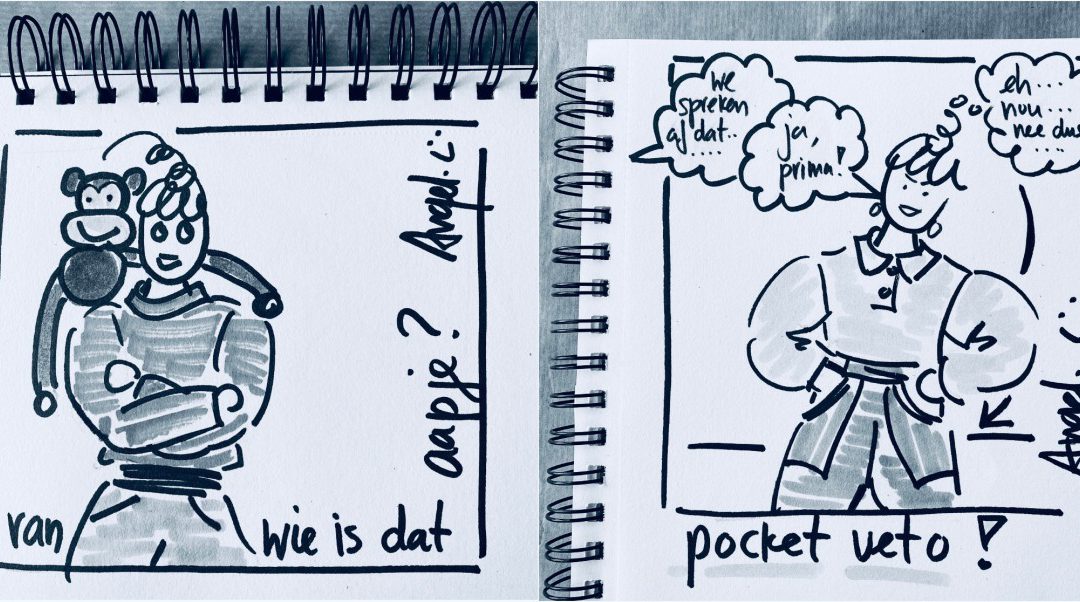 van wie is dat
aapje?
we
spreken
af dat..
....
ja,
prima!
eh....
nou...
nee dus
....
pocket veto!